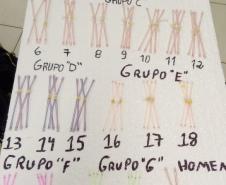 GRUPO "C"
6 7 8 9 10 11 12
GRUPO "D" GRUPO "E"
13 14 15 16 17 18
GRUPO "F" GRUPO "G" HOMEN